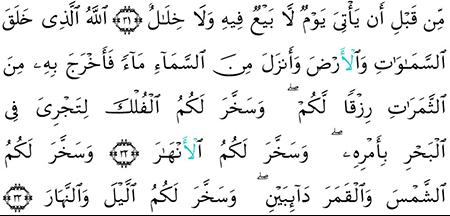 مِّن قَبۡلِ أَن يَأۡتِيَ يَوۡمٞ لَّا بَيۡعٞ فِيهِ وَلَا خِلَٰلٌ ٣١ ٱللَّهُ ٱلَّذِي خَلَقَ
ٱلسَّمَٰوَٰتِ وَٱلۡأَرۡضَ وَأَنزَلَ مِنَ ٱلسَّمَآءِ مَآءٗ فَأَخۡرَجَ بِهِۦ مِنَ
ٱلثَّمَرَٰتِ رِزۡقٗا لَّكُمۡۖ وَسَخَّرَ لَكُمُ ٱلۡفُلۡكَ لِتَجۡرِيَ فِي
ٱلۡبَحۡرِ بِأَمۡرِهِۦۖ وَسَخَّرَ لَكُمُ ٱلۡأَنۡهَٰرَ ٣٢ وَسَخَّرَ لَكُمُ
ٱلشَّمۡسَ وَٱلۡقَمَرَ دَآئِبَيۡنِۖ وَسَخَّرَ لَكُمُ ٱلَّيۡلَ وَٱلنَّهَارَ ٣٣